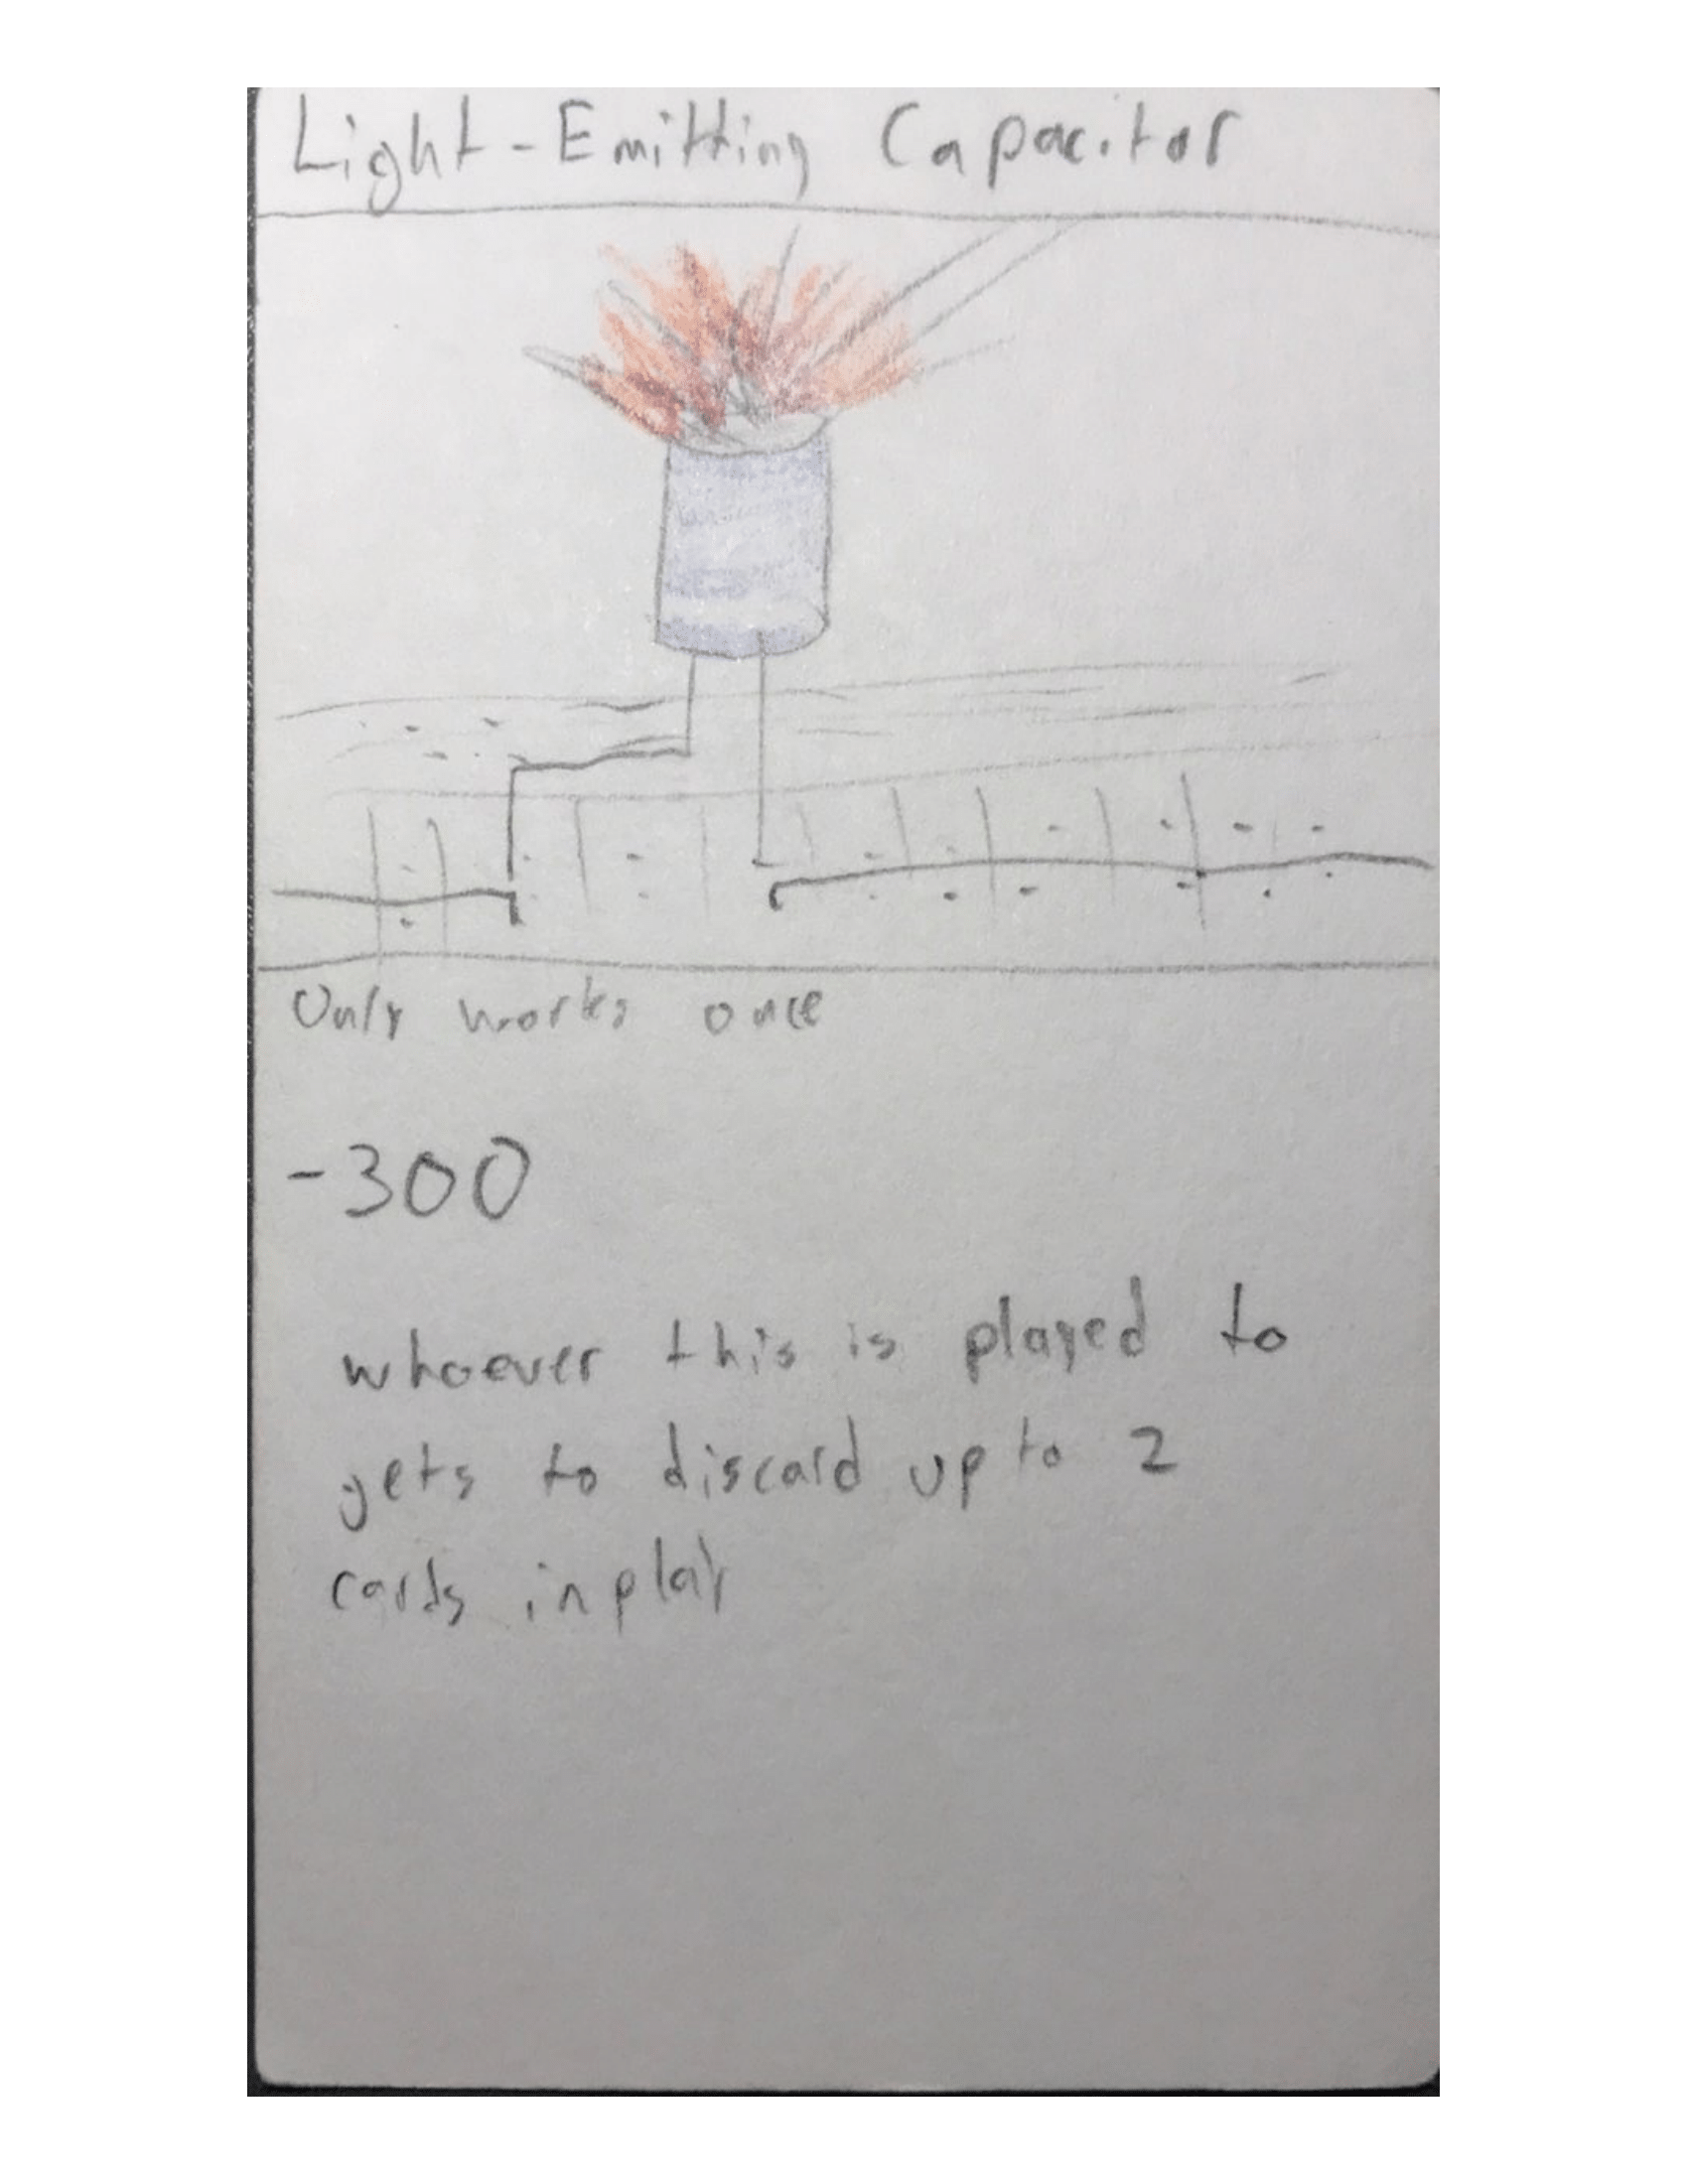 Light-Emitting Capacitor
Only works once
-300
whoever this is played to
gets to discard up to 2
cards in play